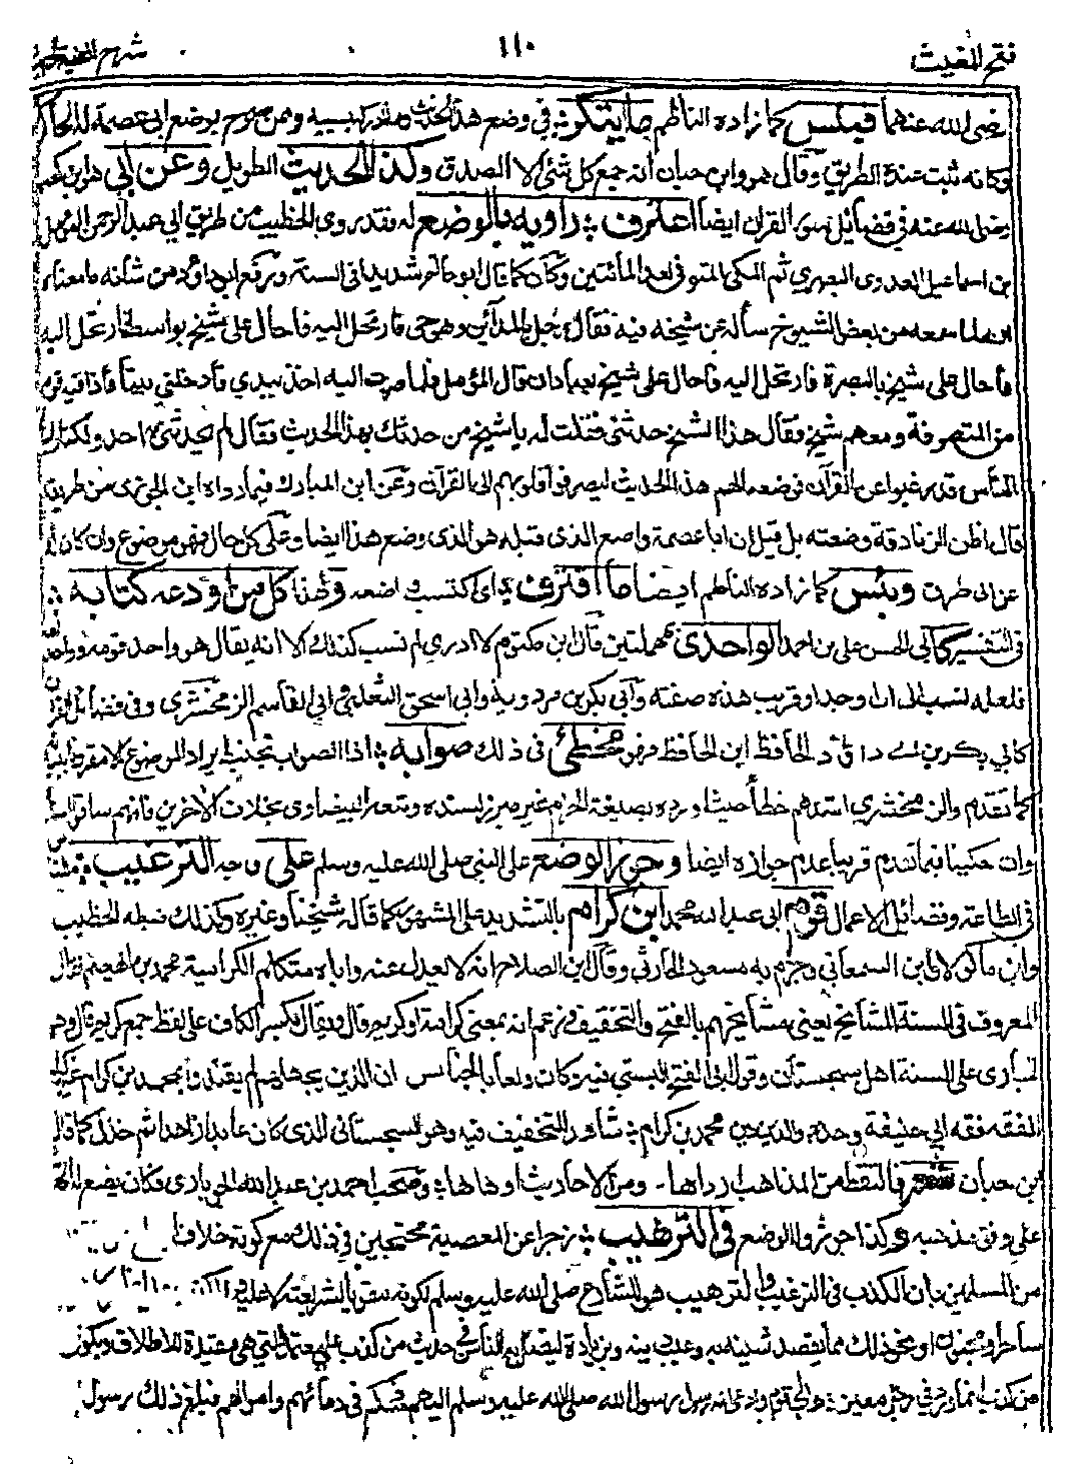 فتح المغيث ١١٠ شرح الفية
رضى الله عنهما فبئس كما زاده الناظم ما ابتكر في وضع هذا الحديث وممن صرح بوضع ابى عصمة له الحاكم
وكانه ثبت عنده الطريق وقال هو وابن حبان انه جمع كل شئ الا الصدق وكذا الحديث الطويل وعن أبي هو ابن كعب
رضى الله عنه في فضائل سور القرآن ايضا اعترف راويه بالوضع له فقد روى الخطيب من طريق ابي عبد الرحمن المؤمل
بن اسماعيل العدوى البصري ثم المكى المتوفى بعد المائتين وكان كما قال ابو حاتم شديدا فى السنة ورفع ابو داؤد من شأنه ما معناه
انه لما سمعه من بعض الشيوخ سأله عن شيخه فيه فقال رجل بالمدائن وهو حى فارتحل اليه فاحال على شيخ بواسط فارتحل اليه
فاحال على شيخ بالبصرة فارتحل اليه فاحال على شيخ بعبادان قال المؤمل فلما صرت اليه اخذ بيدي فأدخلني بيتا فاذا فيه قوم
من المتصوفة ومعهم شيخ فقال هذا الشيخ حدثني فقلت له يا شيخ من حدثك بهذا الحديث فقال لم يحدثني به احد ولكنا رأينا
الناس قد رغبوا عن القرآن فوضعنا لهم هذا الحديث ليصرفوا قلوبهم الى القرآن وعن ابن المبارك فيما رواه ابن الجوزى من طريقه
قال اظن الزنادقة وضعته بل قيل ان ابا عصمة واضع الذى قبله هو الذى وضع هذا ايضا وعلى كل حال فهو موضوع وان كان له
عن ابى طرق وبئس كما زاده الناظم ايضا ما اقترف اى اكتسب واضعه وكذا كل من أودعه كتابه
فى التفسير كأبي الحسن علي بن احمد الواحدى بمهملتين قال ابن مكتوم لا ادرى لم نسب كذلك الا انه يقال هو واحد قومه
فلعله نسب الى اب او جد او قريب هذه صفته وأبي بكر بن مردويه وابى اسحق الثعلبي وابي القاسم الزمخشرى وفى فضائل القرآن
كأبي بكر بن ابي داؤد الحافظ ابن الحافظ فهو مخطئ فى ذلك صوابه اذ الصواب تجنب ايراد الموضوع الا مقرونا ببيانه
كما تقدم والزمخشري اشدهم خطأ حيث اورده بصيغة الجزم غير مبرز لسنده وتبعه البيضاوى بخلاف الآخرين فانهم ساقوا
وان حكينا فيما تقدم قريبا عدم جوازه ايضا وجوز الوضع على النبى صلى الله عليه وسلم على وجه الترغيب
فى الطاعة وفضائل الاعمال قوم ابي عبد الله محمد ابن كرام بالتشديد على المشهور كما قال شيخنا وغيره وكذلك ضبطه الخطيب
وابن ماكولا وابن السمعانى وجزم به مسعود الحارثى وقال ابن الصلاح انه لا يعدل عنه واباه متكلم الكرامية محمد بن الهيصم فقال
المعروف فى السنة المشايخ يعنى مشايخهم بالفتح والتخفيف فزعم انه بمعنى كرامة او كريم قال ويقال بكسر الكاف على لفظ جمع كريم قال وهو
الجارى على السنة اهل سجستان وقول ابى الفتح البستي فيه وكان ولعا بالجناس ان الذين بجهلهم لم يقتدوا بمحمد بن كرام غير كرام
الفقه فقه ابي حنيفة وحده والدين دين محمد بن كرام شاهد التخفيف فيه وهو السجستانى الذى كان عابدا زاهدا ثم خذل كما قال
ابن حبان فالتقط من المذاهب ارداها ومن الاحاديث اوهاها وصحب احمد بن عبد الله الجويبارى فكان يضع له
على وفق مذهبه وكذا جوزوا الوضع فى الترهيب زجرا عن المعصية محتجين فى ذلك مع كونه خلاف
من المسلمين بان الكذب فى الترغيب والترهيب هو للشارع صلى الله عليه وسلم لكونه مقويا لشريعته لا عليه
ساحر او مجنون او نحو ذلك مما يقصد شينه به وعيب دينه وبزيادة ليضل به الناس فى حديث من كذب على معتمدا التي هى مقيدة للاطلاق وبكون
من كذب انما ورد في رجل معين ذهب الى قوم وادعى انه رسول رسول الله صلى الله عليه وسلم اليهم يحكم فى دمائهم واموالهم فبلغ ذلك رسول